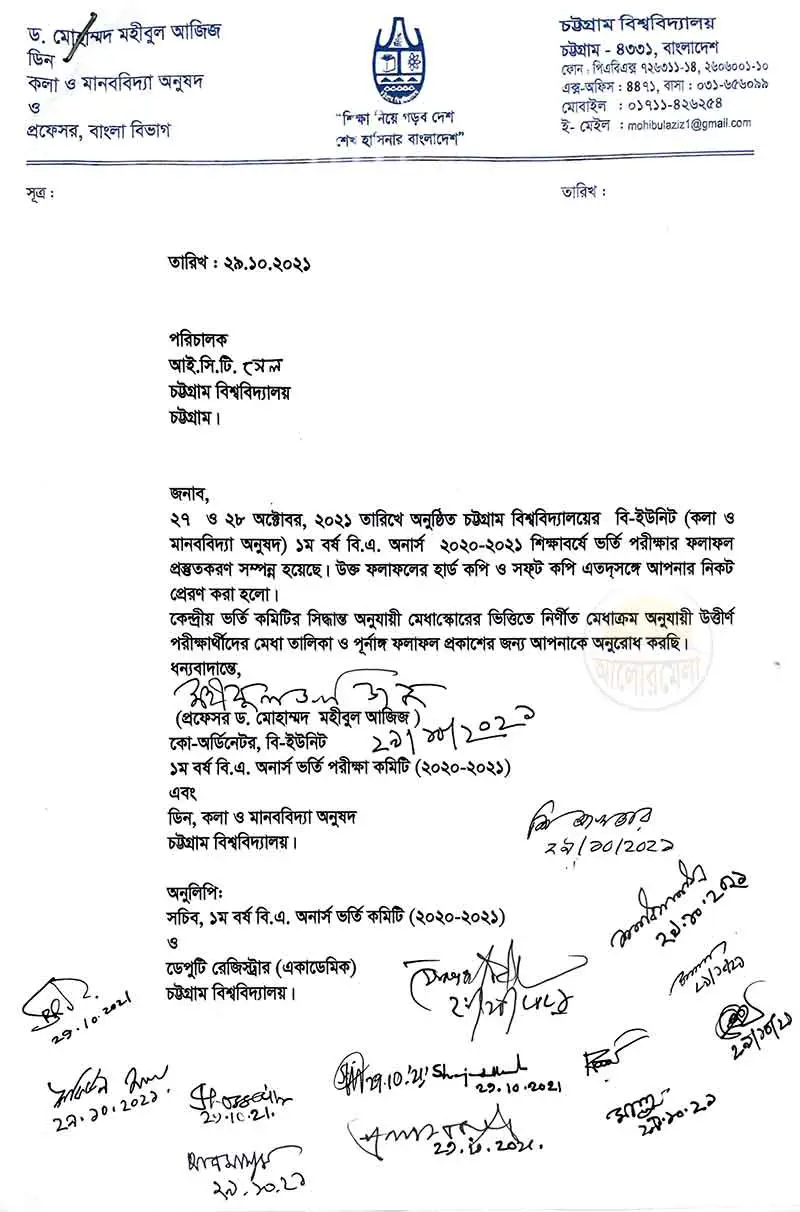 ড. মোহাম্মদ মহীবুল আজিজ
ডিন
কলা ও মানববিদ্যা অনুষদ
ও
প্রফেসর, বাংলা বিভাগ
"শিক্ষা নিয়ে গড়ব দেশ
শেখ হাসিনার বাংলাদেশ"
চট্টগ্রাম বিশ্ববিদ্যালয়
চট্টগ্রাম - ৪৩৩১, বাংলাদেশ
ফোন : পিএবিএক্স ৭২৬৩১১-১৪, ২৬০৬০০১-১০
এক্স-অফিস : ৪৪৭১, বাসা : ০৩১-৬৫৬০৯৯
মোবাইল : ০১৭১১-৪২৬২৫৪
ই- মেইল : mohibulaziz1@gmail.com
সূত্র :
তারিখ :
তারিখ : ২৯.১০.২০২১
পরিচালক
আই.সি.টি. সেল
চট্টগ্রাম বিশ্ববিদ্যালয়
চট্টগ্রাম।
জনাব,
২৭ ও ২৮ অক্টোবর, ২০২১ তারিখে অনুষ্ঠিত চট্টগ্রাম বিশ্ববিদ্যালয়ের বি-ইউনিট (কলা ও
মানববিদ্যা অনুষদ) ১ম বর্ষ বি.এ. অনার্স ২০২০-২০২১ শিক্ষাবর্ষে ভর্তি পরীক্ষার ফলাফল
প্রস্তুতকরণ সম্পন্ন হয়েছে। উক্ত ফলাফলের হার্ড কপি ও সফ্ট কপি এতদ্সঙ্গে আপনার নিকট
প্রেরণ করা হলো।
কেন্দ্রীয় ভর্তি কমিটির সিদ্ধান্ত অনুযায়ী মেধাস্কোরের ভিত্তিতে নির্ণীত মেধাক্রম অনুযায়ী উত্তীর্ণ
পরীক্ষার্থীদের মেধা তালিকা ও পূর্নাঙ্গ ফলাফল প্রকাশের জন্য আপনাকে অনুরোধ করছি।
আলোরমেলা
ধন্যবাদান্তে,
(প্রফেসর ড. মোহাম্মদ মহীবুল আজিজ )
কো-অর্ডিনেটর, বি-ইউনিট ২৯/১০/২০২১
১ম বর্ষ বি.এ. অনার্স ভর্তি পরীক্ষা কমিটি (২০২০-২০২১)
এবং
ডিন, কলা ও মানববিদ্যা অনুষদ
চট্টগ্রাম বিশ্ববিদ্যালয়।
২৯/১০/২০২১
অনুলিপি:
সচিব, ১ম বর্ষ বি.এ. অনার্স ভর্তি কমিটি (২০২০-২০২১)
২৯.১০.২০২১
ও
ডেপুটি রেজিস্ট্রার (একাডেমিক)
চট্টগ্রাম বিশ্ববিদ্যালয়।
29.10.2021
২৯.১০.২০২১
29.10.21.
29.10.'21
29.10.2021
২৯.১০.২১
২৯.১০.২১